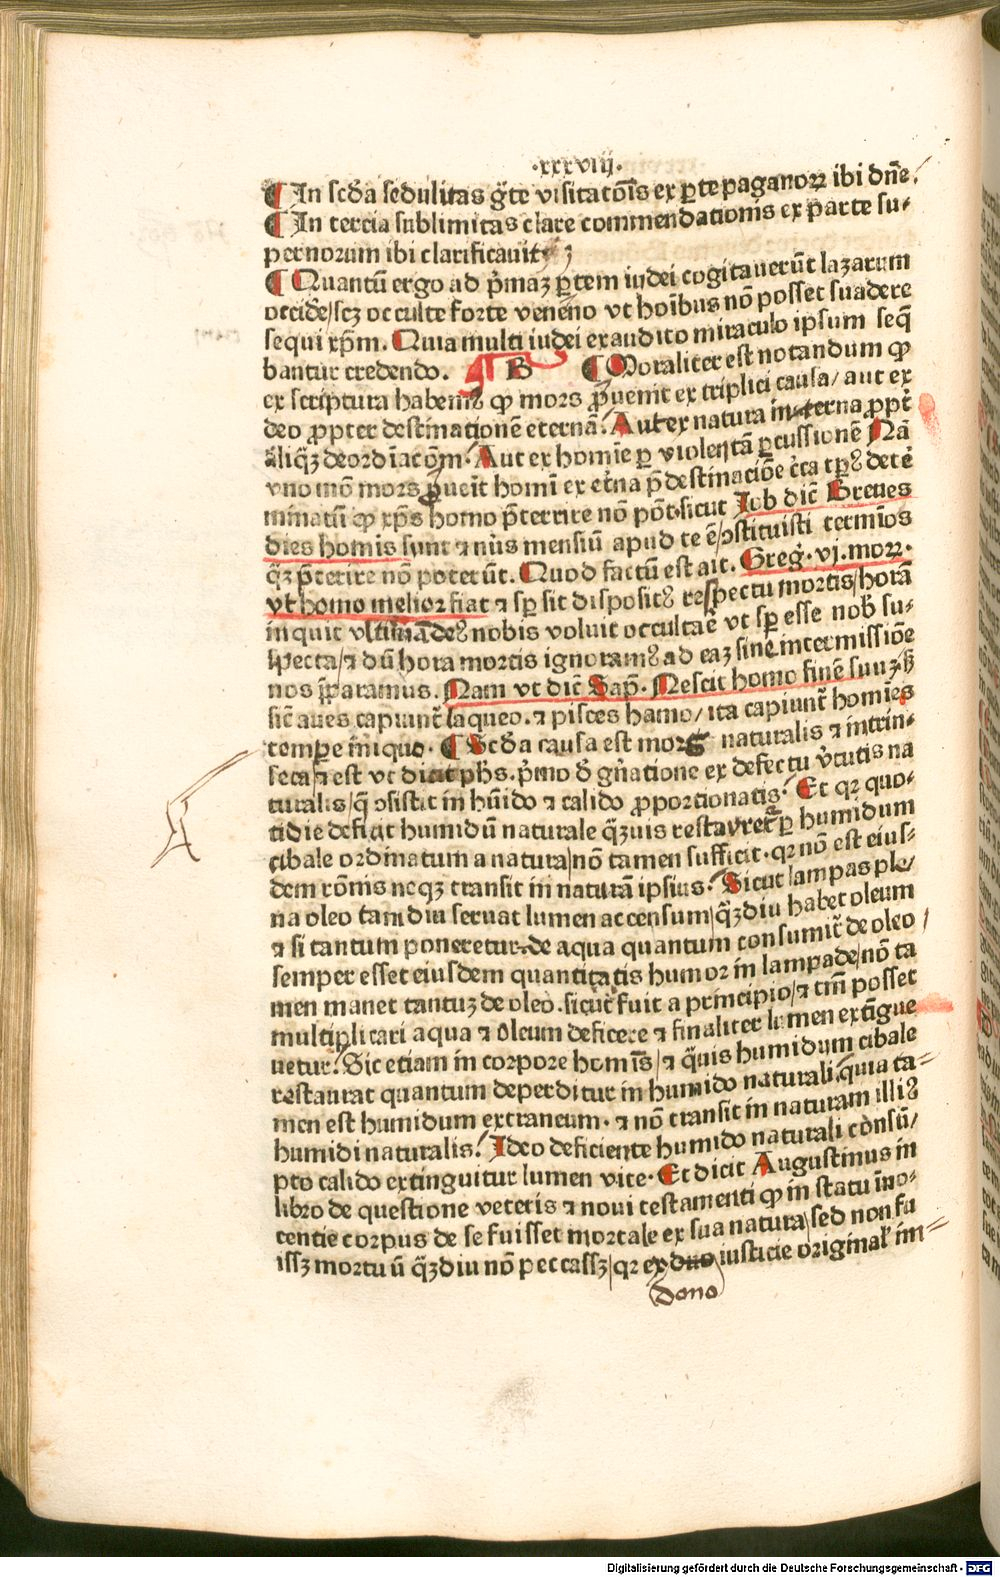 ·xxxviij·
¶ In scďa sedulitas g̃te visitacōis ex ꝑte paganoꝝ ibi dn̄e.
¶ In tercia sublimitas clare commendationis ex parte su-
pernorum ibi clarificauit
¶ Quantū ergo ad p̄maꝫ ꝑtem iudei cogitauerūt lazarum
occidē/scꝫ occulte forte veneno vt hoībus nō posset suadere
sequi xp̄m. Quia multi iudei exaudito miraculo ipsum seq̄
bantur credendo. B ¶ Moraliter est notandum ꝙ
ex scriptura habemꝰ ꝙ mors ꝓuenit ex triplici causa/ aut ex
deo ꝓpter destinationē eternā. Aut ex natura interna ꝓpt̄
aliq̄ꝫ deordīacōm. Aut ex homīe ꝑ violentā ꝑcussionē Nā
vno mō mors ꝓueīt homī ex et̄na p̄destinaciōe c̄ta tꝑꝰ dete
minatū ꝙ xp̄s homo p̄terrire nō pōt.sicut Job dic̄ Breues
dies homis sunt ⁊ nūs mensiū apud te ē/ꝯstituisti termīos
q̄ꝫ p̄terire nō poterūt. Quod factū est ait. Greg̃. vj. moꝝ.
vt homo melior fiat ⁊ sꝑ sit dispositꝰ respectu mortis/horā
inquit vltimā deꝰ nobis voluit occultaē vt sꝑ esse nob̄ su-
specta/⁊ dū hora mortis ignoramꝰ ad eaꝫ sine intermissiōe
nos p̄paramus. Nam vt dic̄ Sap̄. Nescit homo finē suuꝫ/ꝫ
sic̄ aues capiunt̄ laqueo. ⁊ pisces hamo/ ita capiunt̄ homīes
tempe iniquo. ¶ Scďa causa est mors naturalis ⁊ intrin-
seca/⁊ est vt dicit ph̄s. p̄mo ď gn̄atione ex defectu v̄tutis na
turalis/ q̄ ꝯsistit in hūido ⁊ calido ꝓporcionatis. Et qꝛ quo-
tidie deficit humidū naturale q̄ꝫuis restauret̄ ꝑ humidum
cibale ordinatum a natura/nō tamen sufficit. qꝛ nō est eius-
dem rōnis neqꝫ transit in naturā ipsius. Sicut lampas ple/
na oleo tam diu seruat lumen accensum/q̄ꝫdiu habet oleum
⁊ si tantum poneretur de aqua quantum consumit̄ de oleo
semper esset eiusdem quantitatis humor in lampade/nō ta
men manet tantuꝫ de oleo. sicut̄ fuit a principio/⁊ tm̄ posset
multiplicari aqua ⁊ oleum deficere ⁊ finaliter lumen extīgue
uetur. Sic etiam in corpore homīs/ ⁊ q̄uis humidum cibale
restaurat quantum deperditur in humido naturali quia ta-
men est humidum extraneum. ⁊ nō transit in naturam illiꝰ
humidi naturalis. Ideo deficiente humido naturali consū/
pto calido extinguitur lumen vite. Et dicit Augustinus in
libro de questione veteris ⁊ noui testamenti ꝙ in statu īno-
centie corpus de se fuisset mortale ex sua natura/ sed non fu
issꝫ mortuū q̄ꝫdiu nō peccassꝫ/qꝛ ex duo iusticie originał im-
dono
Digitalisierung gefördert durch die Deutsche Forschungsgemeinschaft - DFG